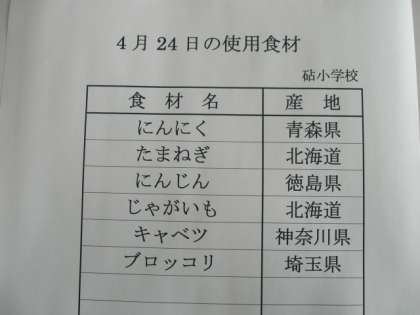 4月24日の使用食材
砧小学校
食材名 産地
にんにく 青森県
たまねぎ 北海道
にんじん 徳島県
じゃがいも 北海道
キャベツ 神奈川県
ブロッコリ 埼玉県